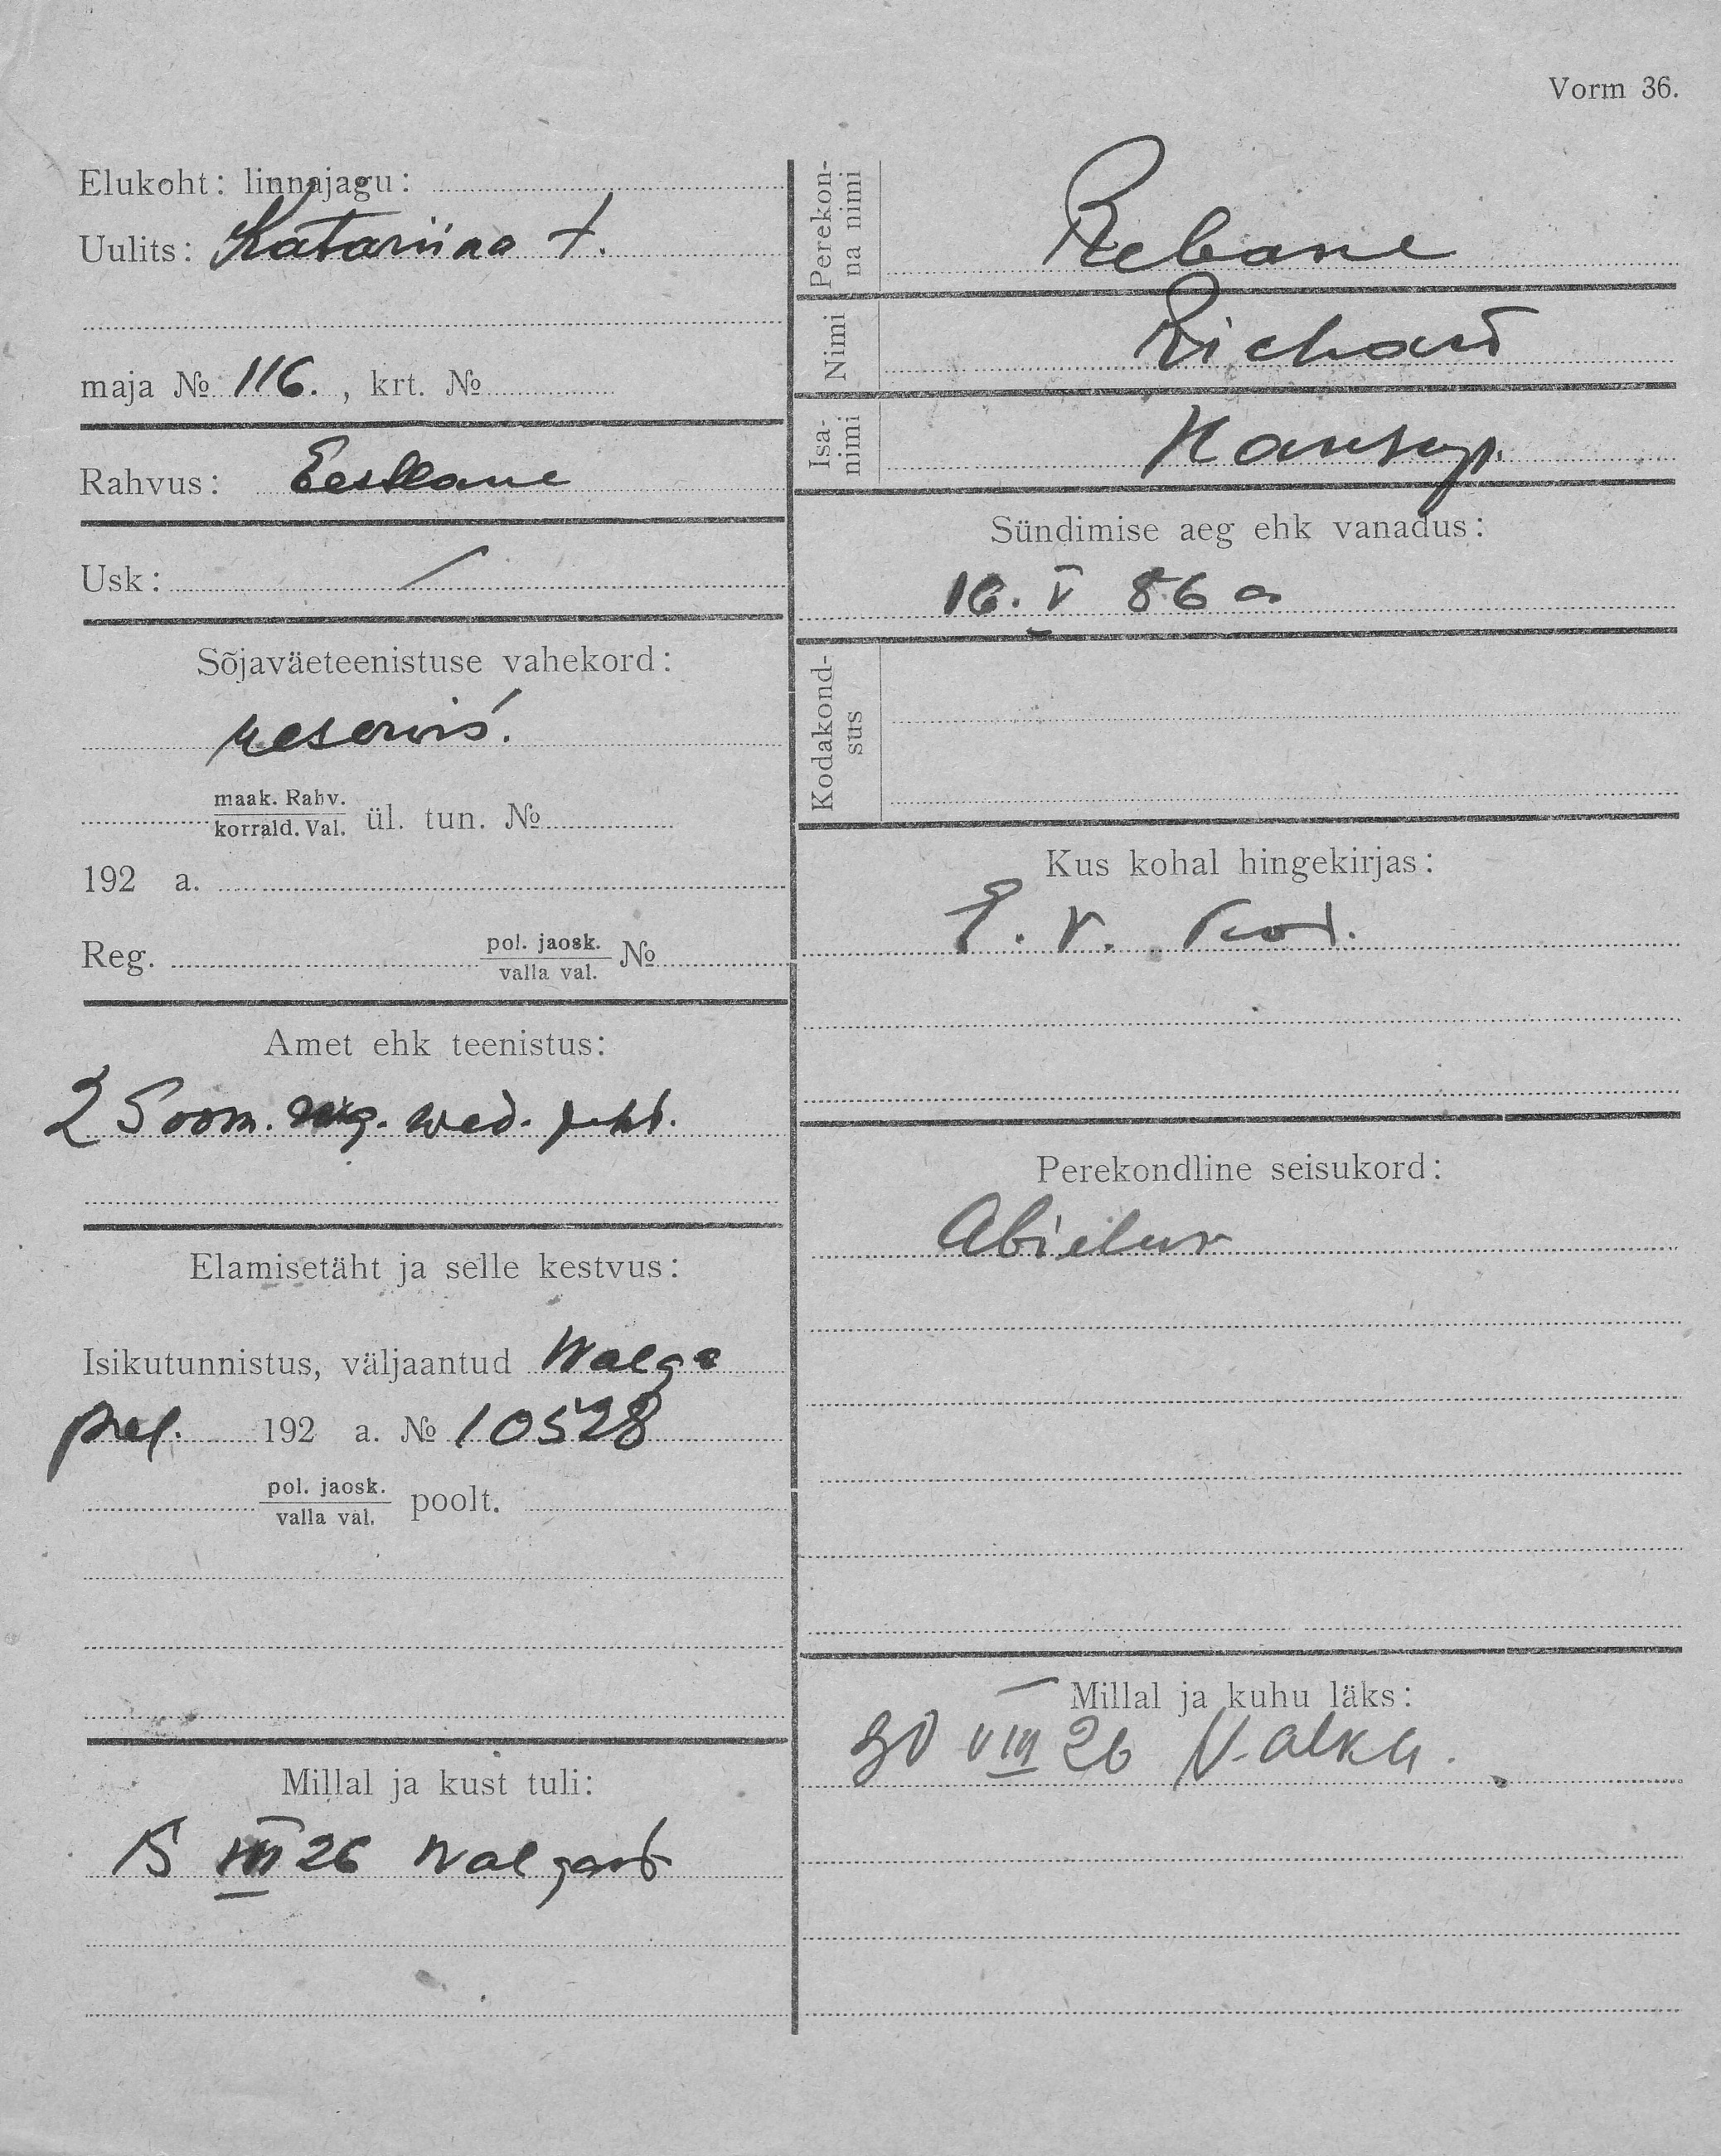 Vorm 36.
Elukoht: linnajagu:
Uulits: Katariina t.
maja № 116. , krt. №
Rahvus: Eestlane
Usk: /
Sõjaväeteenistuse vahekord:
reservis.
maak. Rahv.
korrald. Val. ül. tun. №
192 a.
Reg. pol. jaosk.
valla val. №
Amet ehk teenistus:
2 Soom. wed. juht.
Elamisetäht ja selle kestvus:
Isikutunnistus, väljaantud Walga
pref. 192 a. № 10528
pol. jaosk.
valla val. poolt.
Millal ja kust tuli:
15 VIII 26 Walgast
Perekon-
na nimi
Rebane
Nimi
Richard
Isa-
nimi
Hansu p.
Sündimise aeg ehk vanadus:
16. V 86 a
Kodakond-
sus
Kus kohal hingekirjas:
E. V. kod.
Perekondline seisukord:
Abielus
Millal ja kuhu läks:
30 VIII 26 Valka.